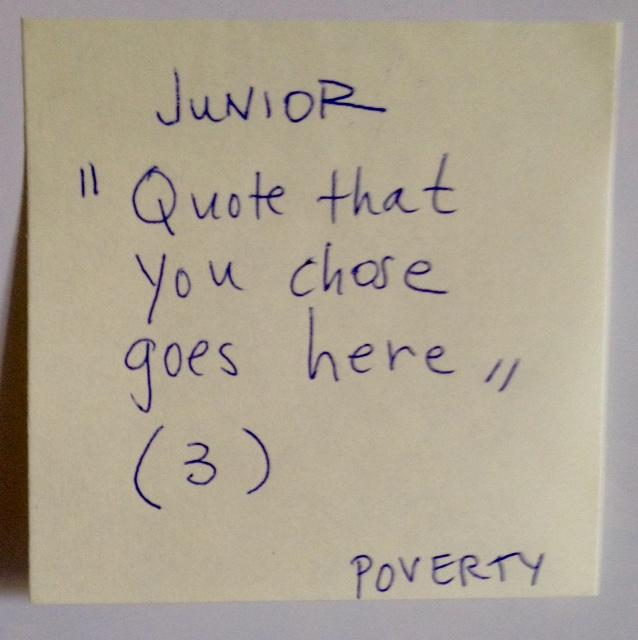 JUNIOR
" Quote that
you chose
goes here "
(3)
POVERTY